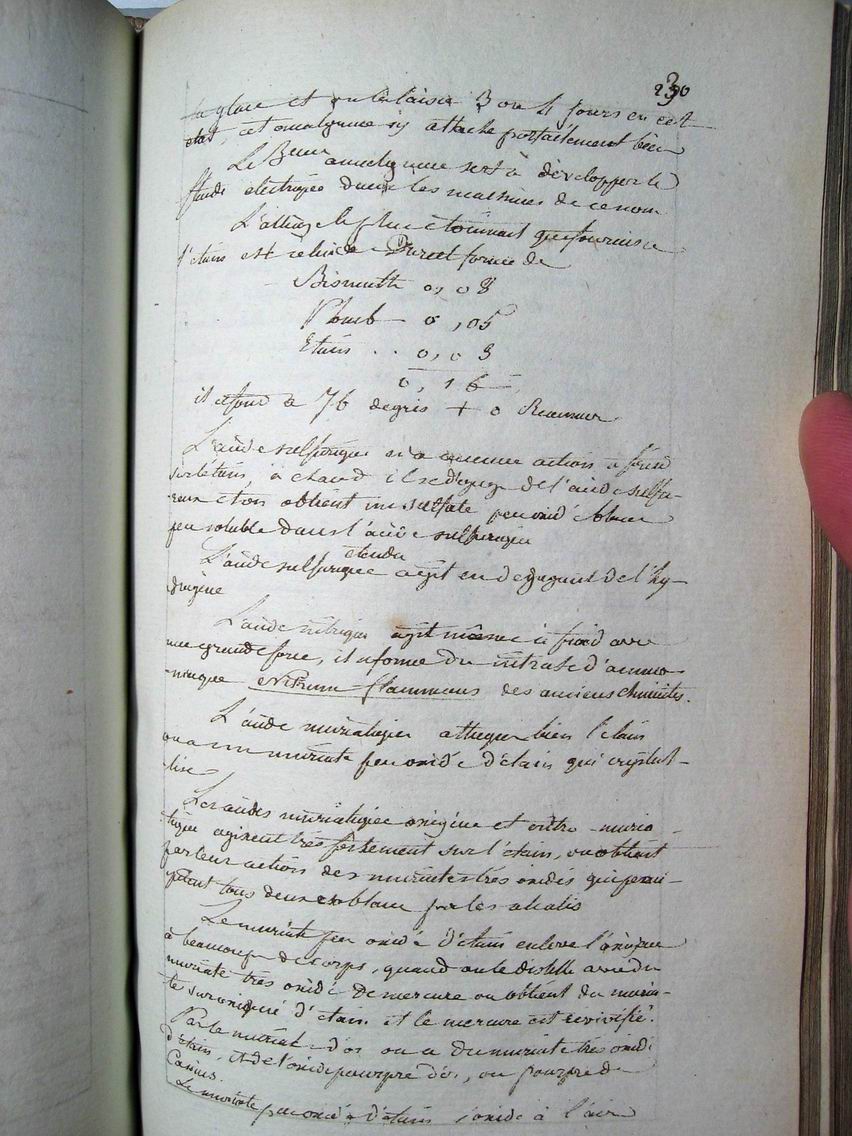 230
la glace et on le laisse 3 ou 4 jours en cet
état, cet amalgame s'y attache parfaitement bien
Le Beau amalgame sert à développer le
fluide electrique dans les machines de ce nom
L'alliage le plus étonnant que fournisse
l'étain est celui de Darcet formé de
Bismuth 0,08
Plomb 0,05
Etain .. 0,03
0,16
il se fond à 76 degrés + 0 Reaumur
L'acide sulfurique n'a aucune action à froid
sur l'étain, à chaud il se dégage de l'acide sulfu-
reux et on obtient un sulfate peu oxidé blanc
peu soluble dans l'acide sulfurique
étendu
L'acide sulfurique agit en dégageant de l'hy-
drogène
L'acide nitrique agit même à froid avec
une grande force, il se forme du nitrate d'ammo-
niaque Nitrum flammans des anciens chimistes.
L'acide muriatique attaque bien l'étain
on a un muriate peu oxidé d'étain qui crystal-
lise
Les acides muriatique oxigéné et nitro-muria-
tique agissent très fortement sur l'étain, on obtient
par leur action des muriates très oxidés qui préci-
pitent tous deux en blanc par les alcalis
Le muriate peu oxidé d'étain enleve l'oxigene
à beaucoup de corps, quand on le distille avec du
muriate très oxidé de mercure on obtient du muria-
te suroxigéné d'étain et le mercure est revivifié.
Par le muriate d'or on a du muriate très oxidé
d'étain, et de l'oxide pourpre d'or, ou pourpre de
Cassius.
Le muriate peu oxidé d'étain s'oxide à l'air